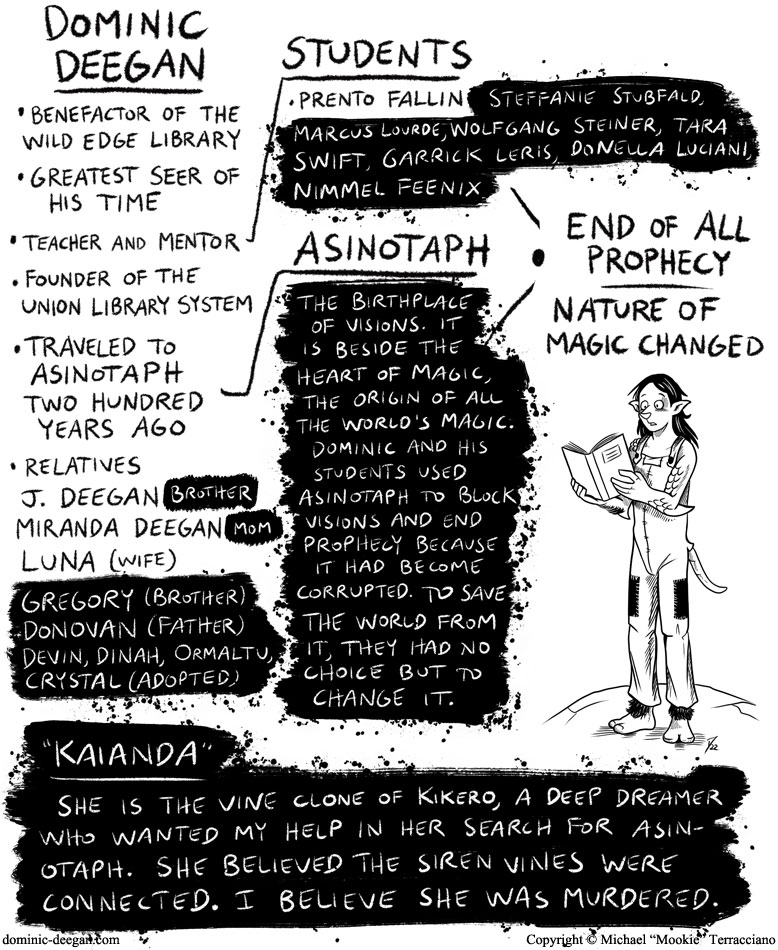 DOMINIC
DEEGAN
• BENEFACTOR OF THE
WILD EDGE LIBRARY
• GREATEST SEER OF
HIS TIME
• TEACHER AND MENTOR
• FOUNDER OF THE
UNION LIBRARY SYSTEM
• TRAVELED TO
ASINOTAPH
TWO HUNDRED
YEARS AGO
• RELATIVES
J. DEEGAN BROTHER
MIRANDA DEEGAN MOM
LUNA (WIFE)
GREGORY (BROTHER)
DONOVAN (FATHER)
DEVIN, DINAH, ORMALTU,
CRYSTAL (ADOPTED)
STUDENTS
• PRENTO FALLIN STEFFANIE STUBFALD,
MARCUS LOURDE, WOLFGANG STEINER, TARA
SWIFT, GARRICK LERIS, DONELLA LUCIANI,
NIMMEL FEENIX
ASINOTAPH
THE BIRTHPLACE
OF VISIONS. IT
IS BESIDE THE
HEART OF MAGIC,
THE ORIGIN OF ALL
THE WORLD'S MAGIC.
DOMINIC AND HIS
STUDENTS USED
ASINOTAPH TO BLOCK
VISIONS AND END
PROPHECY BECAUSE
IT HAD BECOME
CORRUPTED. TO SAVE
THE WORLD FROM
IT, THEY HAD NO
CHOICE BUT TO
CHANGE IT.
END OF ALL
PROPHECY
NATURE OF
MAGIC CHANGED
"KAIANDA"
SHE IS THE VINE CLONE OF KIKERO, A DEEP DREAMER
WHO WANTED MY HELP IN HER SEARCH FOR ASIN-
OTAPH. SHE BELIEVED THE SIREN VINES WERE
CONNECTED. I BELIEVE SHE WAS MURDERED.
dominic-deegan.com
Copyright © Michael "Mookie" Terracciano